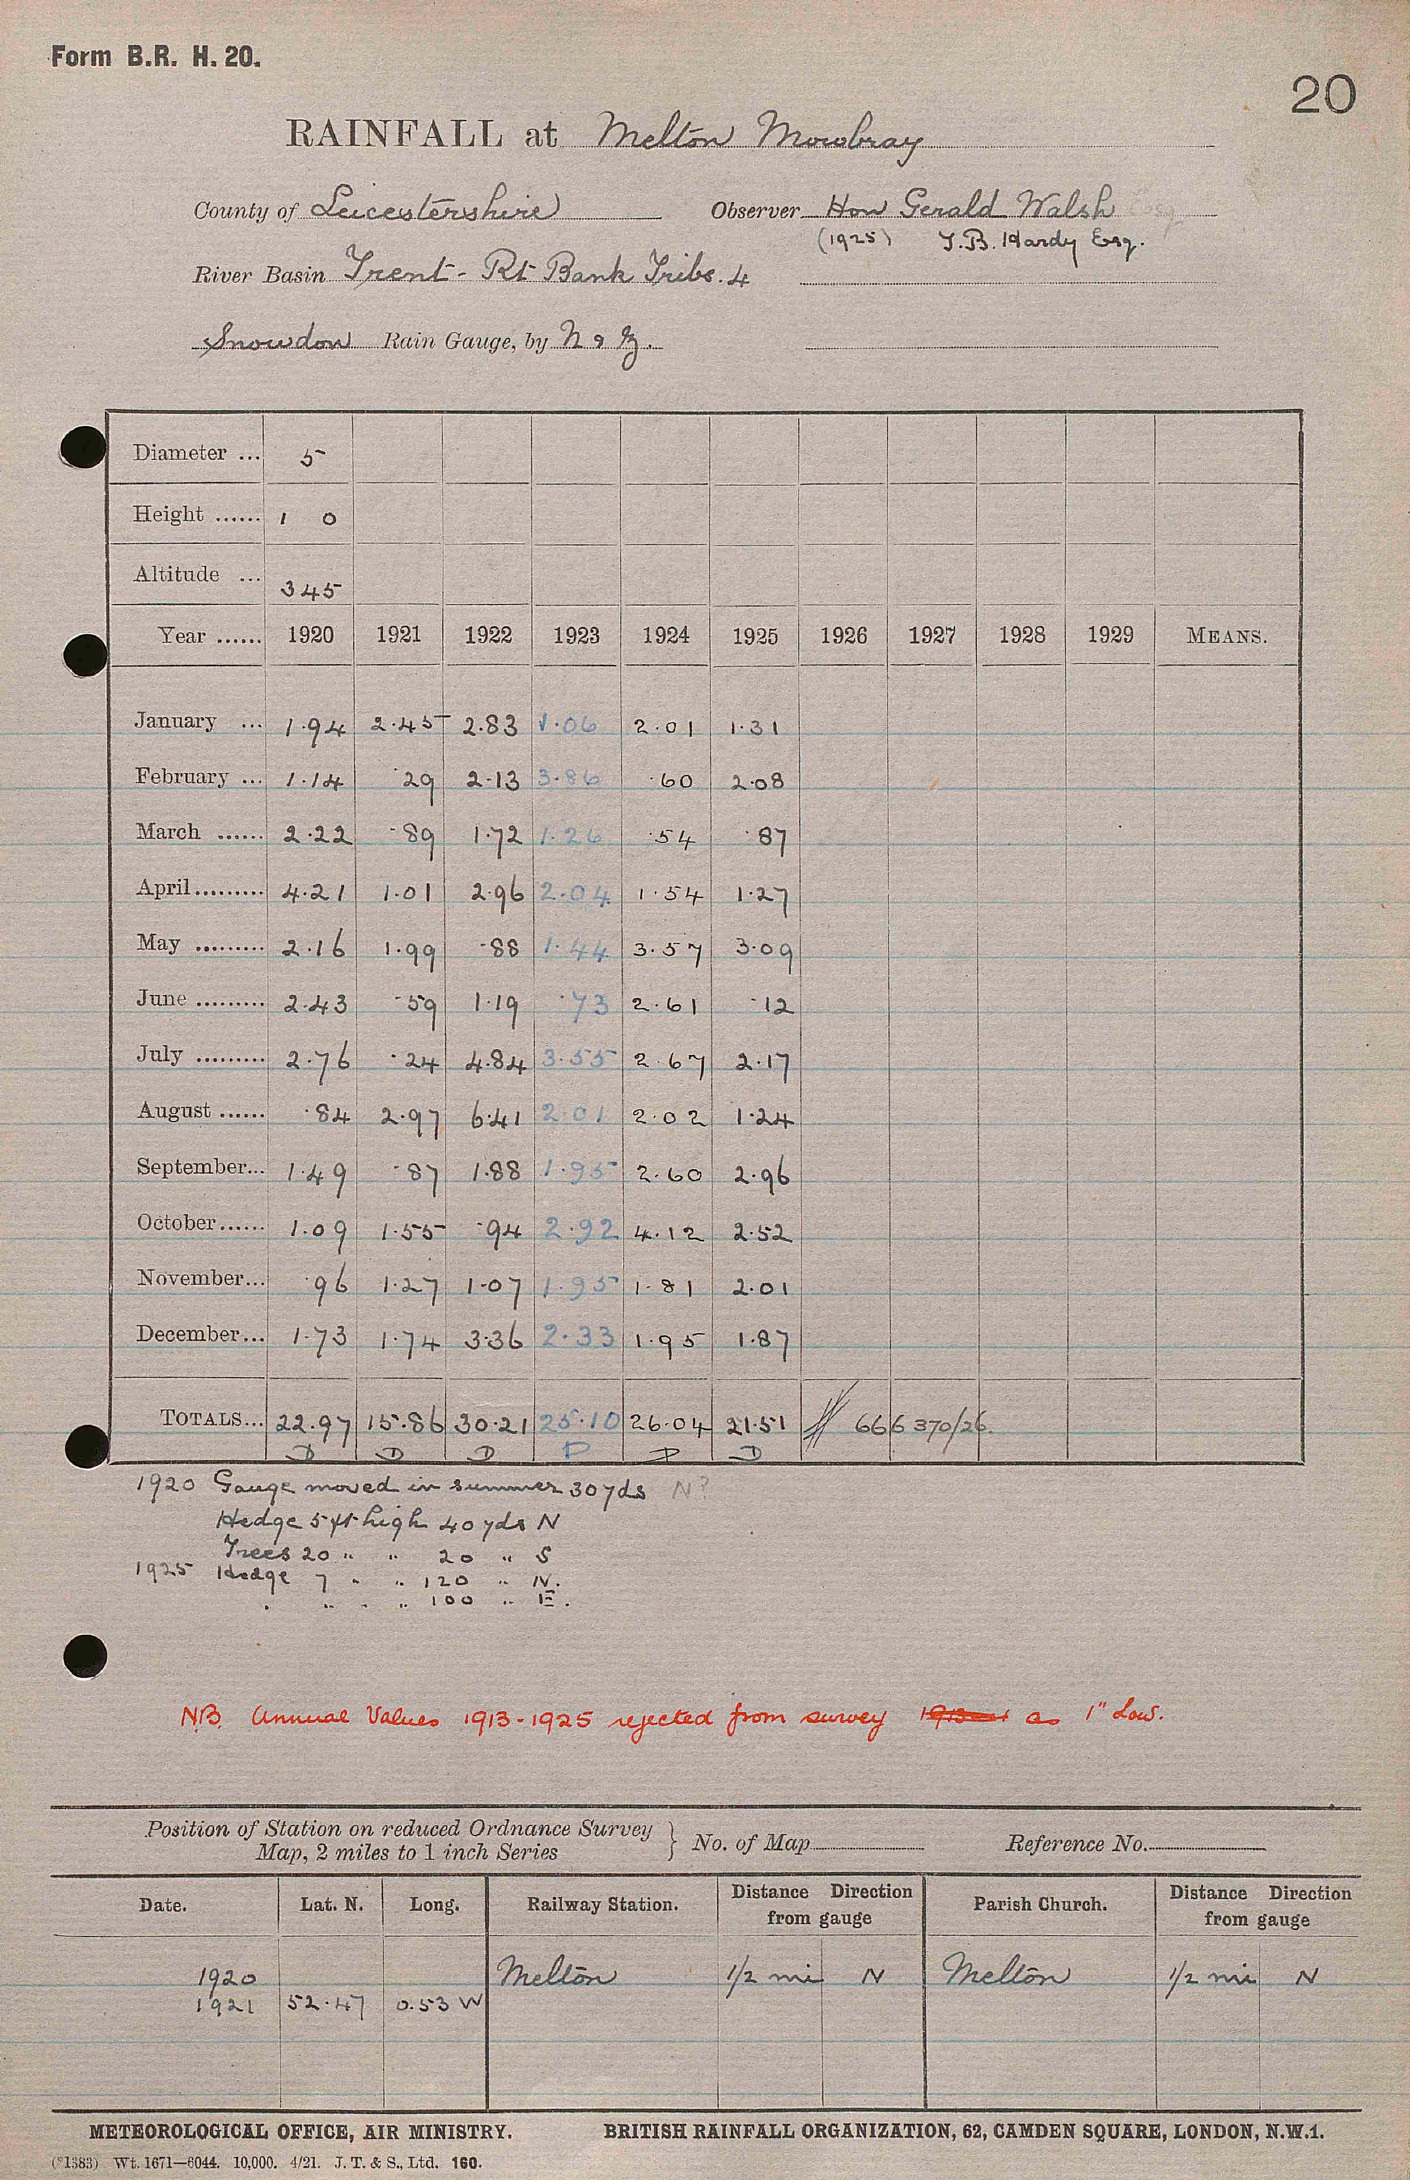 Form B.R. H. 20.
20
RAINFALL at Melton Mowbray
County of Leicestershire Observer Hon Gerald Walsh Esq
(1925) T.B. Hardy Esq.
River Basin Trent - Rt Bank Tribs. 4
Snowdon Rain Gauge, by N & Z.
Diameter ... 5
Height ...... 1 0
Altitude ... 345
Year ...... 1920 1921 1922 1923 1924 1925 1926 1927 1928 1929 MEANS.
January ... 1.94 2.45 2.83 1.06 2.01 1.31
February ... 1.14 .29 2.13 3.86 .60 2.08
March ...... 2.22 .89 1.72 1.26 .54 .87
April......... 4.21 1.01 2.96 2.04 1.54 1.27
May ......... 2.16 1.99 .88 1.44 3.57 3.09
June ......... 2.43 .59 1.19 .73 2.61 .12
July ......... 2.76 .24 4.84 3.55 2.67 2.17
August ...... .84 2.97 6.41 2.01 2.02 1.24
September... 1.49 .87 1.88 1.95 2.60 2.96
October...... 1.09 1.55 .94 2.92 4.12 2.52
November... .96 1.27 1.07 1.95 1.81 2.01
December... 1.73 1.74 3.36 2.33 1.95 1.87
TOTALS... 22.97 15.86 30.21 25.10 26.04 21.51 666370/26.
D D D D D D
1920 Gauge moved in summer 30 yds N?
Hedge 5 ft high 40 yds N
Trees 20 " " 20 " S
1925 Hedge 7 " " 120 " N.
" " " " 100 " E.
N.B. Annual Values 1913-1925 rejected from survey as 1" Low.
Position of Station on reduced Ordnance Survey } No. of Map Reference No.
Map, 2 miles to 1 inch Series
Date. Lat. N. Long. Railway Station. Distance Direction from gauge Parish Church. Distance Direction from gauge
1920 Melton 1/2 mi N Melton 1/2 mi N
1921 52.47 0.53 W
METEOROLOGICAL OFFICE, AIR MINISTRY. BRITISH RAINFALL ORGANIZATION, 62, CAMDEN SQUARE, LONDON, N.W.1.
(*1383) Wt. 1671—6044. 10,000. 4/21. J. T. & S., Ltd. 160.